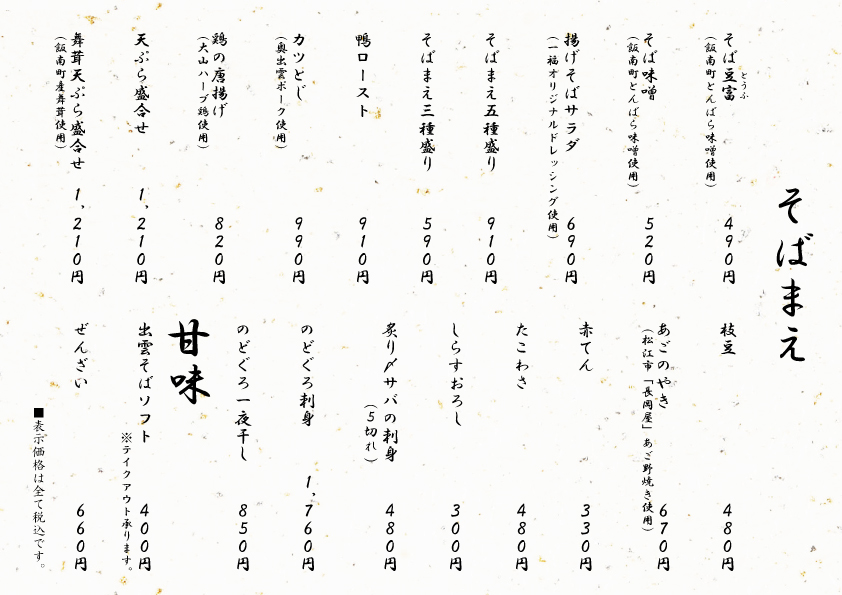 そばまえ
そば豆富
とうふ
(飯南町とんばら味噌使用)
490円
そば味噌
(飯南町とんばら味噌使用)
520円
揚げそばサラダ
(一福オリジナルドレッシング使用)
690円
そばまえ五種盛り
910円
そばまえ三種盛り
590円
鴨ロースト
910円
カツとじ
(奥出雲ポーク使用)
990円
鶏の唐揚げ
(大山ハーブ鶏使用)
820円
天ぷら盛合せ
1,210円
舞茸天ぷら盛合せ
(飯南町産舞茸使用)
1,210円
枝豆
480円
あごのやき
(松江市「長岡屋」あご野焼き使用)
670円
赤てん
330円
たこわさ
480円
しらすおろし
300円
炙り〆サバの刺身
(5切れ)
480円
のどぐろ刺身
1,760円
のどぐろ一夜干し
850円
甘味
出雲そばソフト
※テイクアウト承ります。
400円
ぜんざい
660円
■表示価格は全て税込です。